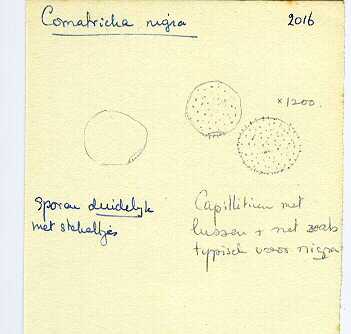 Comatricha nigra
2016
×1200.
Sporen duidelijk
met stekeltjes
Capillitium met
lussen + net zoals
typisch voor nigra